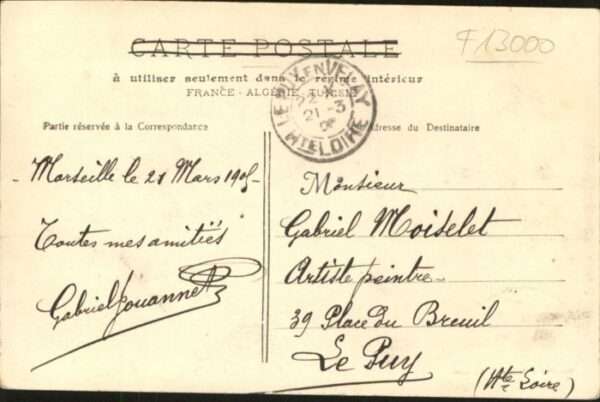 F13000
CARTE POSTALE
à utiliser seulement dans le régime intérieur
FRANCE - ALGÉRIE - TUNISIE
LE PUY EN VELAY
21 - 3
HTE LOIRE
Partie réservée à la Correspondance
Adresse du Destinataire
Marseille le 21 Mars 1905
Toutes mes amitiés
Gabriel Jouannet
Monsieur
Gabriel Moiselet
Artiste peintre
39 Place du Breuil
Le Puy
(Hte Loire)